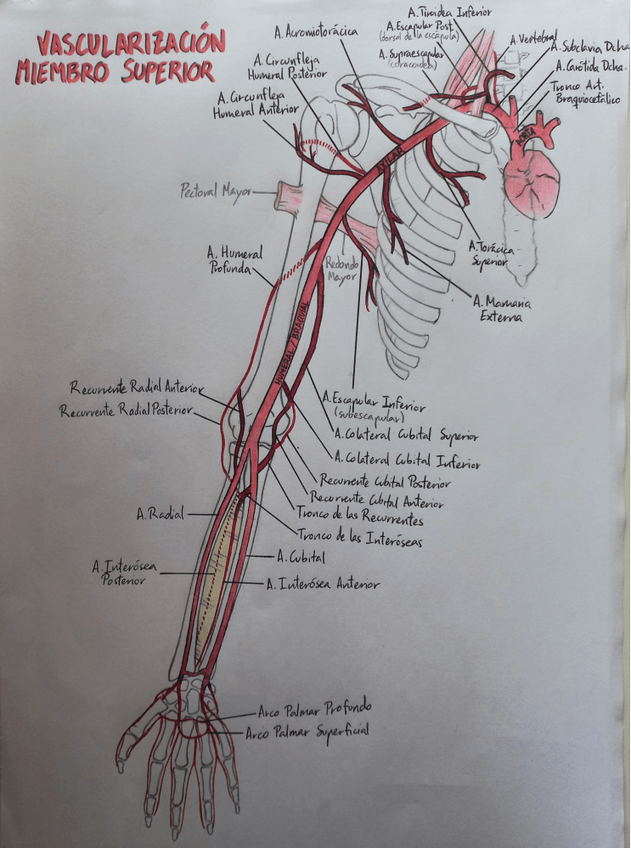 VASCULARIZACIÓN
MIEMBRO SUPERIOR
A. Acromiotorácica
A. Circunfleja
Humeral Posterior
A. Circunfleja
Humeral Anterior
A. Tiroidea Inferior
A. Escapular Post.
(dorsal de la escápula)
A. Supraescapular
(coracoidea)
A. Vertebral
A. Subclavia Dcha
A. Carótida Dcha.
Tronco Art.
Braquiocefálico
AORTA
AXILAR
Pectoral Mayor
A. Humeral
Profunda
Redondo
Mayor
A. Torácica
Superior
A. Mamaria
Externa
HUMERAL / BRAQUIAL
Recurrente Radial Anterior
Recurrente Radial Posterior
A. Escapular Inferior
(subescapular)
A. Colateral Cubital Superior
A. Colateral Cubital Inferior
Recurrente Cubital Posterior
Recurrente Cubital Anterior
Tronco de las Recurrentes
Tronco de las Interóseas
A. Radial
A. Cubital
A. Interósea
Posterior
A. Interósea Anterior
Arco Palmar Profundo
Arco Palmar Superficial